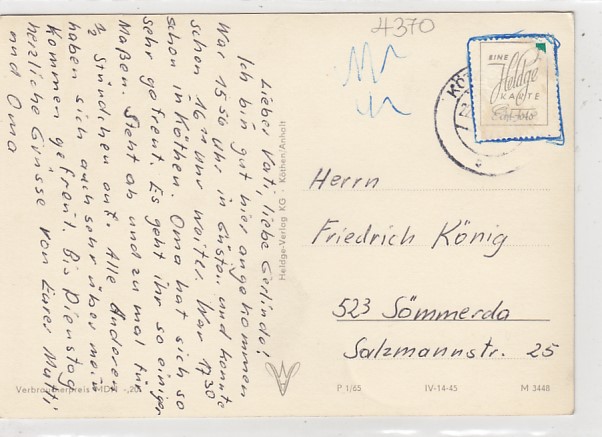 4370
Lieber Vati, liebe Gerlinde!
Ich bin gut hier angekommen
War 15 56 Uhr in Güsten und konnte
schon 16 11 Uhr weiter. War 17 30
schon in Köthen. Oma hat sich so
sehr gefreut. Es geht ihr so einiger
Maßen. Steht ab und zu mal für
1/2 Stündchen auf. Alle Anderen
haben sich auch sehr über mein
Kommen gefreut. Bis Dienstag
herzliche Grüsse von Eurer Mutti
und Oma
Heldge-Verlag KG · Köthen/Anhalt
EINE
Heldge
KARTE
Echt Foto
KÖT
Herrn
Friedrich König
523 Sömmerda
Salzmannstr. 25
Verbraucherpreis MDN -,20
P 1/65 IV-14-45 M 3448